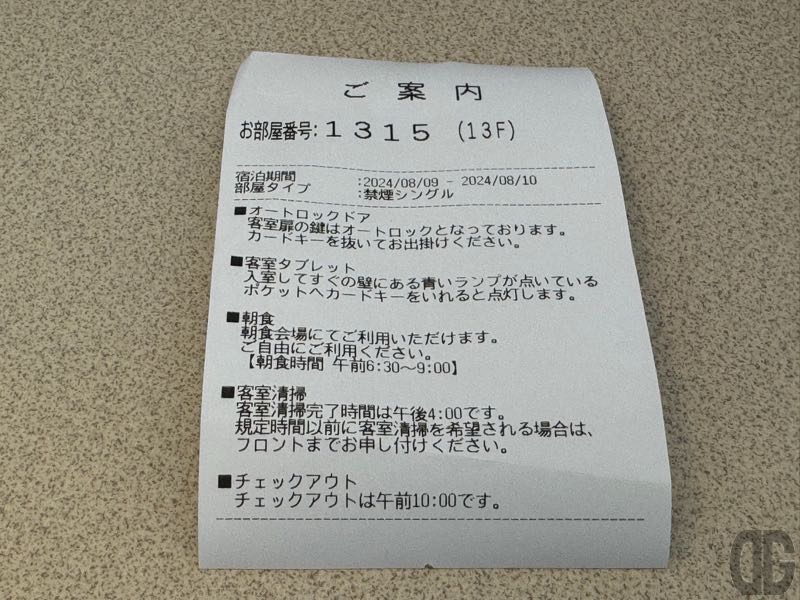 ご案内
お部屋番号:1315 (13F)
宿泊期間 :2024/08/09 - 2024/08/10
部屋タイプ :禁煙シングル
■オートロックドア
客室扉の鍵はオートロックとなっております。
カードキーを抜いてお出掛けください。
■客室タブレット
入室してすぐの壁にある青いランプが点いている
ポケットへカードキーをいれると点灯します。
■朝食
朝食会場にてご利用いただけます。
ご自由にご利用ください。
【朝食時間 午前6:30~9:00】
■客室清掃
客室清掃完了時間は午後4:00です。
規定時間以前に客室清掃を希望される場合は、
フロントまでお申し付けください。
■チェックアウト
チェックアウトは午前10:00です。
DG